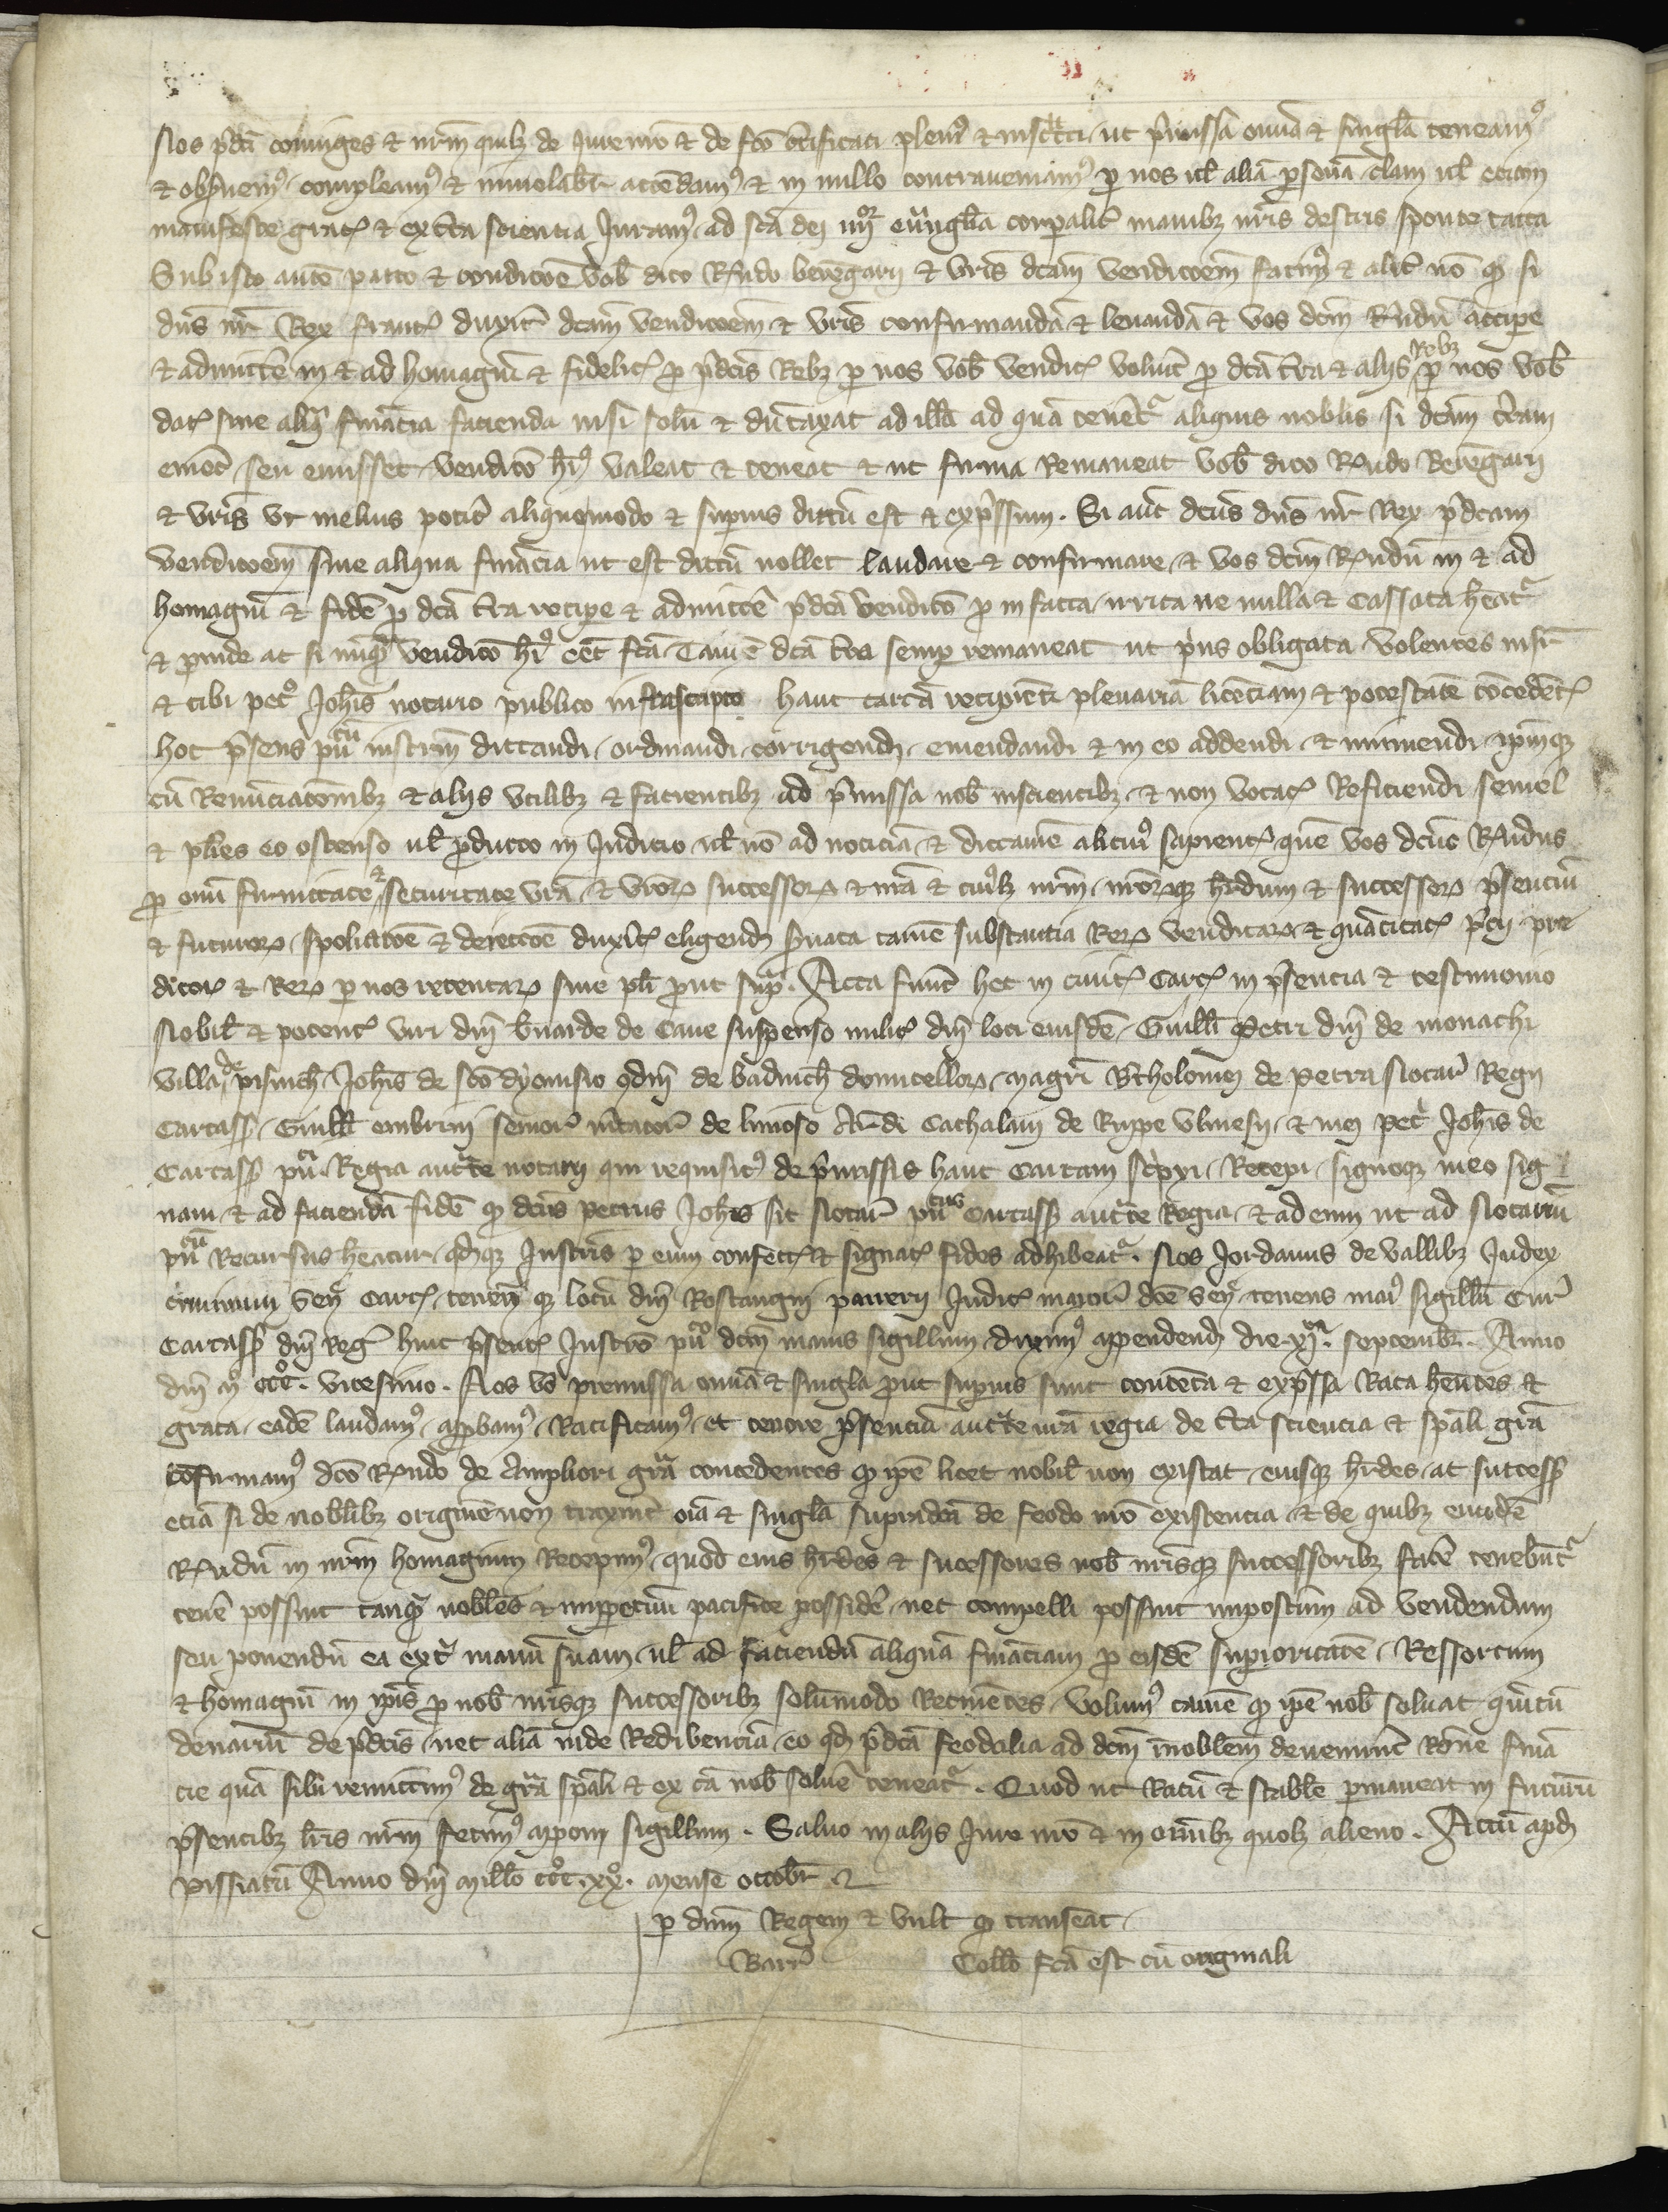 Nos p̄dci coniuges & nr̄m quilz de iure nr̄o & de fc̄o c̄tificati plenꝰ & instructi ut p̄missa om̄ia & singl̄a teneamꝰ
& obs̄uemꝰ compleamꝰ & inuiolabr̄ attēdamꝰ & in nullo contraueniamꝰ ꝑ nos ul̄ aliā ꝑsonā clam ul̄ etiam
manifeste gratꝭ & ex c̄ta scientia Iuramꝰ ad sc̄a dei iiijor eūngl̄ia corꝑalit̄ manibꝫ nr̄is dextris sponte tacta
Sub isto autē pacto & condicōe vob̄ dc̄o R̄ndo berēgarii & vr̄is dc̄am vendicōem facimꝰ & alit̄ nō ꝙ si
dn̄s nr̄ Rex francꝭ duxit̄ dc̄am vendicōem & vr̄is confirmandā & leuandā & vos dc̄m R̄ndū accipe
& admittē in & ad homagiū & fidelitꝭ ꝓ p̄dcis Rebꝫ ꝑ nos vob̄ venditꝭ voluit̄ ꝓ dc̄a t̄ra & aliis Rebꝫ ꝑ nos vob̄
datꝭ sine aliqua finācia facienda nisi solū & dūtaxat ad illā ad quā tenēt᷑ aliquis nobilis si dc̄am t̄ram
em̄et seu emisset vendicō hꝰ valeat & teneat & ut firma Remaneat vob̄ dc̄o R̄ndo Berēgarii
& vr̄is ut melius potit̄ aliquomodo & suꝑius dictū est & exp̄ssum. Si aut̄ dc̄us dn̄s nr̄ Rex p̄dcam
vendicōem sine aliqua finācia ut est dictū nollet laudare & confirmare & vos dc̄m R̄ndū in & ad
homagiū & fidē ꝓ dc̄a t̄ra recipe & admittē p̄dca vendicō ꝓ infacta irrita ne nulla & Cassata hēat᷑
& ꝓinde ac si nūqᵃ vendicō hꝰ eēt fc̄a Tamē dc̄a t̄ra semꝑ remaneat ut p̄us obligata volentes insr̄
& tibi petrꝰ Joh̄is notario publico infrascripto hanc cartā recipienti plenariā licēciam & potestatē cōcedētꝭ
hoc p̄sens pucū instrm̄ dictandi ordinandi corrigendi emendandi & in eo addendi & minuendi ipm̄qꝫ
cū Renūciatōnibꝫ & aliis utilibꝫ & facientibꝫ ad p̄missa nob̄ inscientibꝫ & non vocatꝭ Reficiendi semel
& plīes eo ostenso ul̄ ꝓducto in Iudicio ul̄ nō ad noticiā & dictamē alicuiꝰ sapientꝭ quē vos dc̄us R̄ndus
ꝓ om̄i firmitate & securitate vr̄a & vr̄orꝝ successorꝝ & nr̄a & cuiꝰlꝫ nr̄m nr̄orqꝫ hr̄dum & successorꝝ p̄senciū
& futurorꝝ spoliatōe & deiectōe duxit̄ eligend̄ s̄uata tamē substantia Rerꝝ venditarꝝ & quātitatꝭ p̄cii pre
dictorꝝ & Rerꝝ ꝑ nos retentarꝝ sine pl̄i ꝓut supᵃ. Acta fuūt hec in ciuitꝭ Carcꝭ in p̄sencia & testimonio
Nobil̄ & potentꝭ viri dn̄i b̄narde de Caue suspenso militꝭ dn̄i loci eiusdē Guill̄i Petri dn̄i de monachi
villa de pisinch̄ Joh̄is de sc̄o dyonisio qdm̄ de badinch̄ domicellorꝝ magr̄i B̄tholomei de petra Notar̄ Regii
Carcass̄ Guill̄i embrini senior̄ mcator̄ de limoso Ar̄di Cathalani de Ruppe vlmesii & mei petr̄ Joh̄is de
Carcass̄ puci Regia auct̄te notarii qui requisitꝰ de p̄missis hanc cartam sc̄psi Recepi signoqꝫ meo sig
naui & ad faciendā fidē ꝙ dc̄us petrus Joh̄is sit Notar̄ pucus Carcass̄ auct̄te Regia & ad eum ut ad Notariū
pucū Recursus heatur qdqꝫ Instris ꝑ eum confectꝭ & signatꝭ fides adhibeat᷑. Nos Jordanus de vallibꝫ Iudex
criminum Sen̄ Carcꝭ tenensqꝫ locū dn̄i Rostangni paneri Iudicꝭ maior̄ dc̄e Sen̄ tenens maiꝰ sigillū Cur̄
Carcass̄ dn̄i Reḡ huic p̄sentꝭ Instro puco dc̄m maius sigillum duximꝰ appendend̄ die xjᵃ. septembr̄. Anno
dn̄i mꝰ cccꝰ. vicesimo. Nos v̄o premissa om̄ia & singl̄a ꝓut suꝑius sunt contēta & exp̄ssa Rata hēntes &
grata eadē laudamꝰ approbamꝰ Ratificamꝰ et tenore p̄senciū auct̄te nr̄a regia de c̄ta sciencia & spāli grā
cōfirmamꝰ dc̄o R̄ndo de Ampliori grā concedentes ꝙ ipē licet nobil̄ non existat eiusqꝫ hr̄des ac success̄
eciā si de nobilibꝫ originē non traxint̄ oīa & singl̄a supradc̄a de feodo nr̄o existencia & de quibꝫ eūdē
R̄ndū in nr̄m homagium Recepimꝰ quod eius hr̄des & sucessores nob̄ nr̄isqꝫ successoribꝫ facē tenebūt᷑
tenē possint tanqᵃ nobiles & imꝑpetuū pacifice possidē nec compelli possint imposterm̄ ad vendendum
seu ponendū ea extᵃ manū suam ul̄ ad faciendū aliquā fināciam ꝓ eisdē suꝑioritatē Ressortum
& homagiū in ip̄is ꝓ nob̄ nr̄isqꝫ successoribꝫ solūmodo Retinētes Volumꝰ tamē ꝙ ipē nob̄ soluat quītū
denariū de p̄dcis nec aliā inde Redibenciā eo qd̄ p̄dca feodalia ad dc̄m inobilem deuenint̄ Rōne finā
cie quā sibi remittimꝰ de grā spāli & ex cā nob̄ soluē teneat᷑. Quod ut Ratū & stabile ꝑmaneat in futurū
p̄sentibꝫ lr̄is nr̄m fecimꝰ apponi sigillum. Saluo in aliis Iure nr̄o & in om̄ibꝫ quolꝫ alieno. Actū apd̄
pissiacū Anno dn̄i mill̄o cccꝰ. xxꝰ. mense octobr̄
ꝑ dnm̄ Regem & vult ꝙ transeat
Barr̄ Coll̄o fc̄a est cū originali